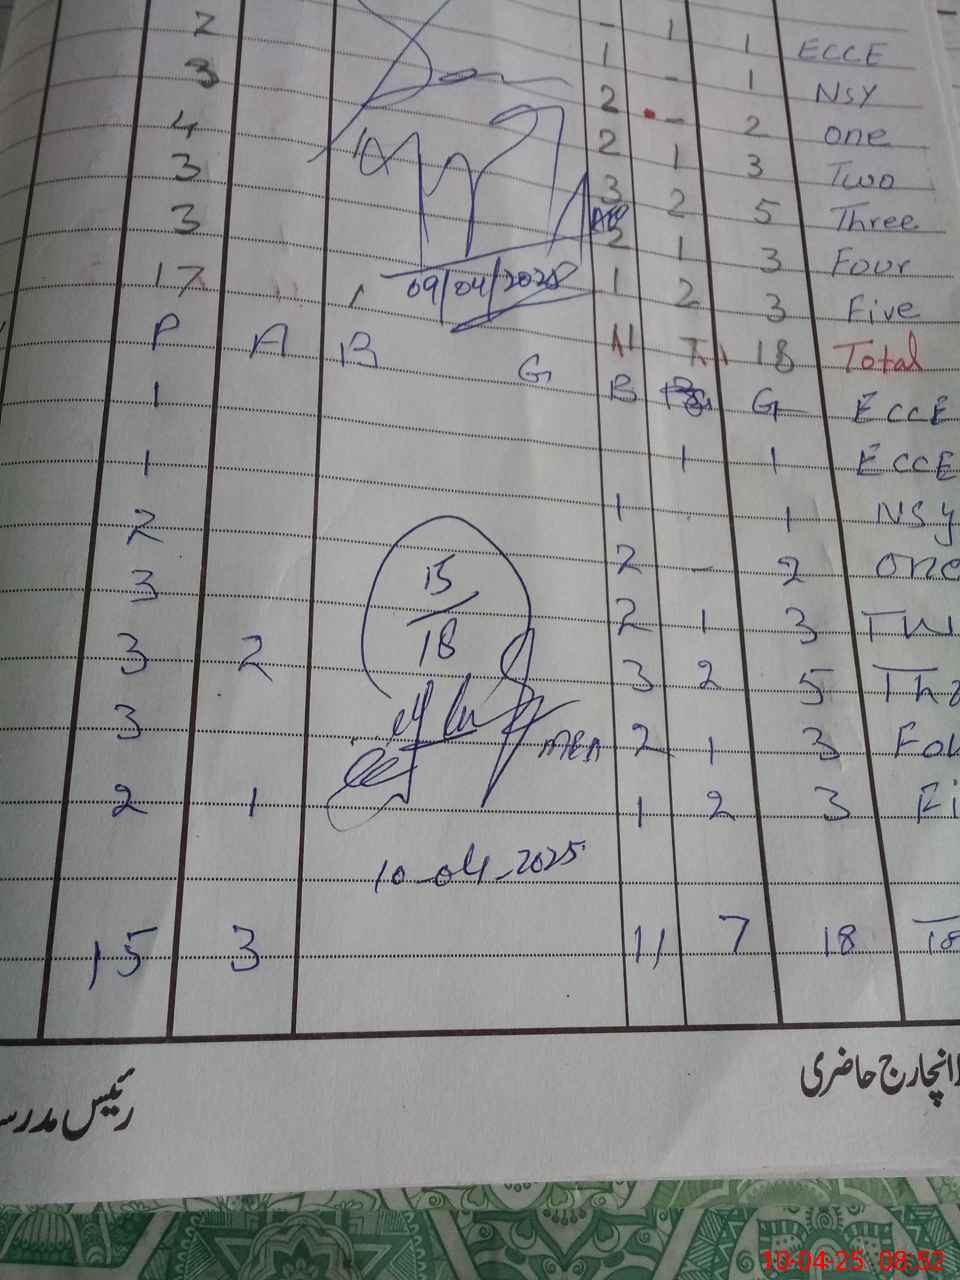 2 - 1 1 ECCE
3 1 - 1 NSY
4 2 - 2 one
3 2 1 3 Two
3 3 2 5 Three
2 1 3 Four
17 09/04/2025 1 2 3 Five
11 7 18 Total
P A B G B G ECCE
1
1 1 1 ECCE
2 1 1 NSY
3 15/18 2 - 2 one
2 1 3 Tw
3 2 3 2 5 Th
3 MEA 2 1 3 Fou
2 1 1 2 3 Fi
10-04-2025
15 3 11 7 18 To
رئیس مدرسہ انچارج حاضری
10-04-25 08:52